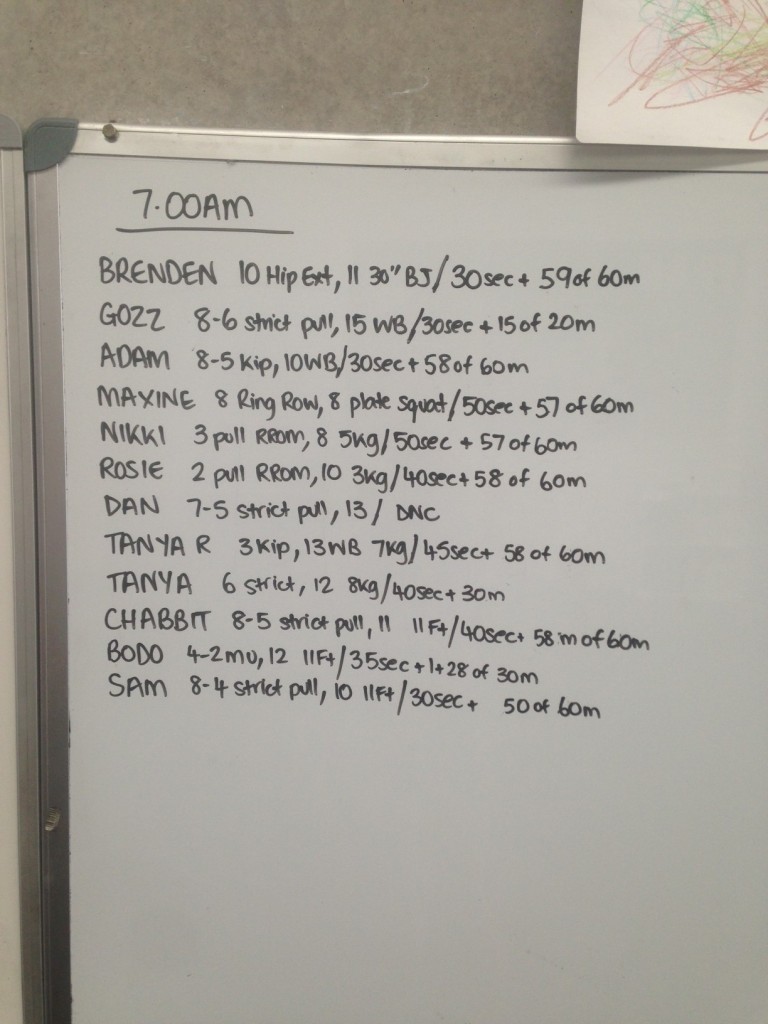 7.00AM
BRENDEN 10 Hip Ext, 11 30" BJ/30sec + 59 of 60m
GOZZ 8-6 strict pull, 15 WB/30sec + 15 of 20m
ADAM 8-5 Kip, 10WB/30sec + 58 of 60m
MAXINE 8 Ring Row, 8 plate squat/50sec + 57 of 60m
NIKKI 3 pull RROM, 8 5kg/50sec + 57 of 60m
ROSIE 2 pull RROM, 10 3kg/40sec + 58 of 60m
DAN 7-5 strict pull, 13/ DNC
TANYA R 3 Kip, 13 WB 7kg/45sec + 58 of 60m
TANYA 6 strict, 12 8kg/40sec + 30m
CHABBIT 8-5 strict pull, 11 11Ft/40sec + 58m of 60m
BODO 4-2 mu, 12 11Ft/35sec + 1+28 of 30m
SAM 8-4 strict pull, 10 11Ft/30sec + 50 of 60m